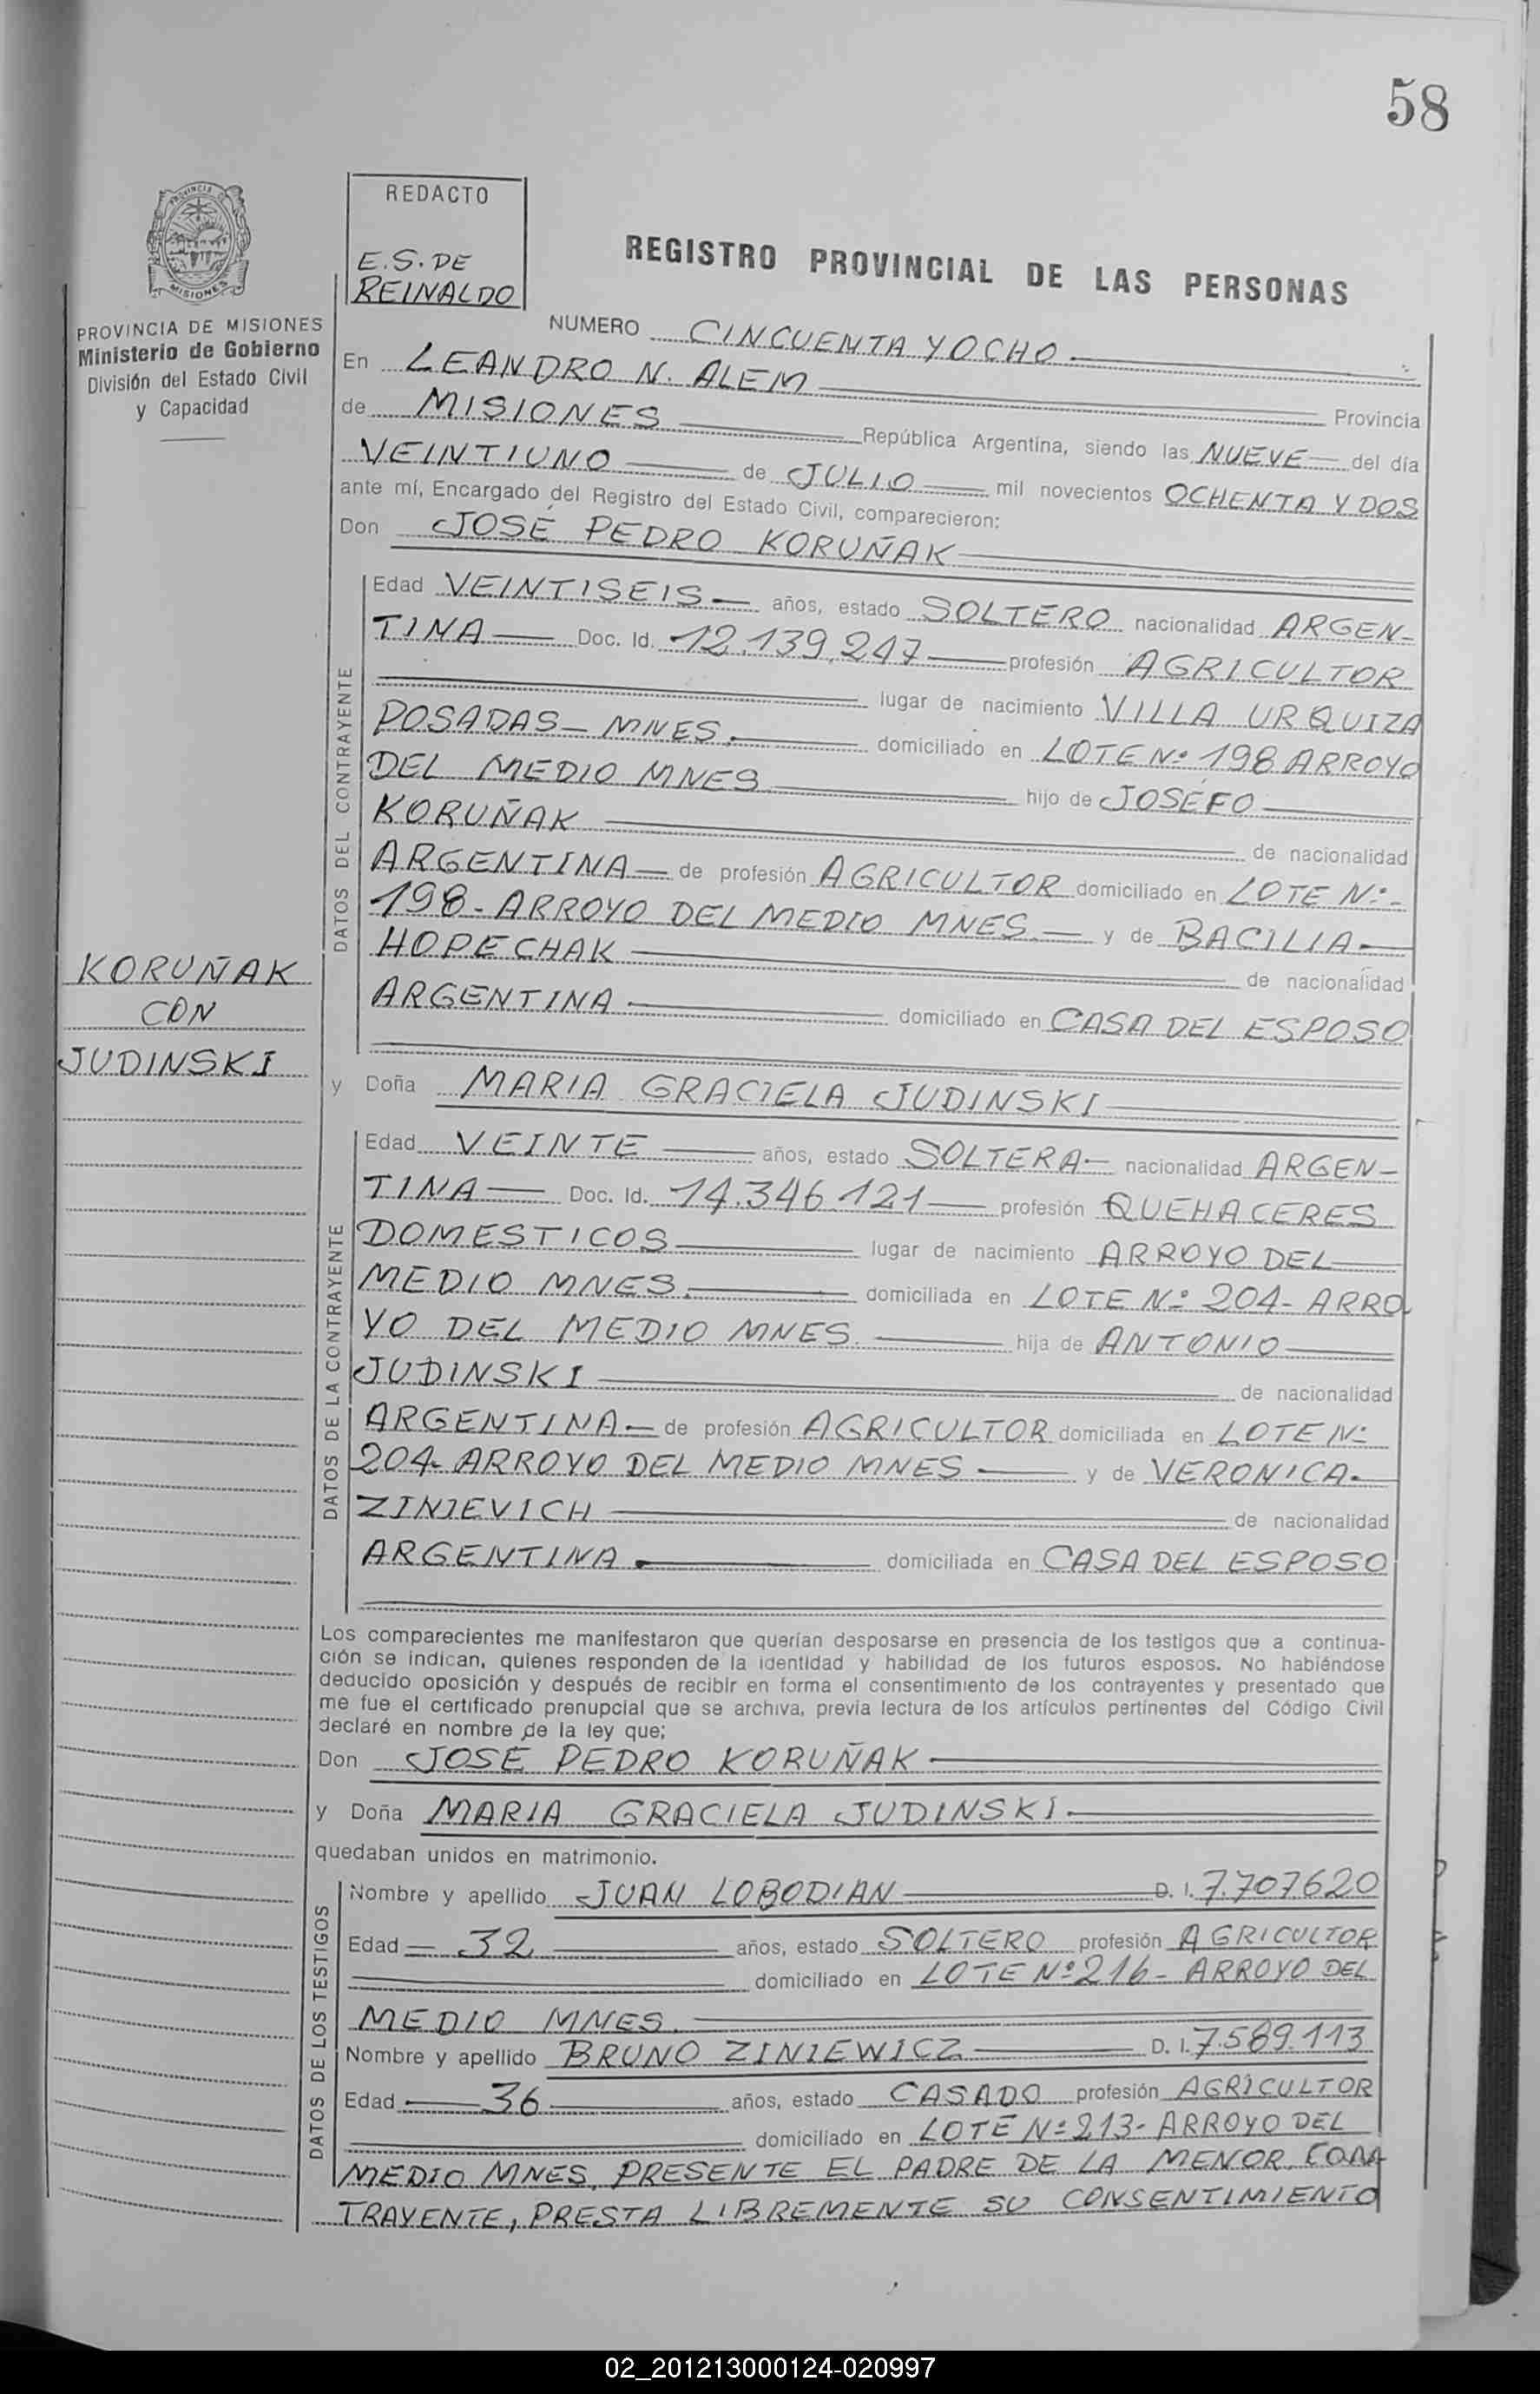 58
REDACTO
E.S. DE
REINALDO
REGISTRO PROVINCIAL DE LAS PERSONAS
PROVINCIA DE MISIONES
Ministerio de Gobierno
División del Estado Civil
y Capacidad
NUMERO CINCUENTA Y OCHO
En LEANDRO N. ALEM Provincia
de MISIONES República Argentina, siendo las NUEVE del día
VEINTIUNO de JULIO mil novecientos OCHENTA Y DOS
ante mí, Encargado del Registro del Estado Civil, comparecieron:
Don JOSÉ PEDRO KORUÑAK
DATOS DEL CONTRAYENTE
Edad VEINTISEIS años, estado SOLTERO nacionalidad ARGEN-
TINA Doc. Id. 12.139.247 profesión AGRICULTOR
lugar de nacimiento VILLA URQUIZA
POSADAS - MNES. domiciliado en LOTE Nº 198 ARROYO
DEL MEDIO MNES hijo de JOSÉFO
KORUÑAK de nacionalidad
ARGENTINA de profesión AGRICULTOR domiciliado en LOTE Nº-
198- ARROYO DEL MEDIO MNES. y de BACILIA
HOPECHAK de nacionalidad
ARGENTINA domiciliado en CASA DEL ESPOSO
KORUÑAK
CON
JUDINSKI
y Doña MARIA GRACIELA JUDINSKI
DATOS DE LA CONTRAYENTE
Edad VEINTE años, estado SOLTERA nacionalidad ARGEN-
TINA Doc. Id. 14.346.121 profesión QUEHACERES
DOMESTICOS lugar de nacimiento ARROYO DEL
MEDIO MNES. domiciliada en LOTE Nº 204- ARRO
YO DEL MEDIO MNES. hija de ANTONIO
JUDINSKI de nacionalidad
ARGENTINA de profesión AGRICULTOR domiciliada en LOTE Nº
204- ARROYO DEL MEDIO MNES y de VERONICA
ZINIEVICH de nacionalidad
ARGENTINA domiciliada en CASA DEL ESPOSO
Los comparecientes me manifestaron que querían desposarse en presencia de los testigos que a continua-
ción se indican, quienes responden de la identidad y habilidad de los futuros esposos. No habiéndose
deducido oposición y después de recibir en forma el consentimiento de los contrayentes y presentado que
me fue el certificado prenupcial que se archiva, previa lectura de los artículos pertinentes del Código Civil
declaré en nombre de la ley que;
Don JOSÉ PEDRO KORUÑAK
y Doña MARIA GRACIELA JUDINSKI
quedaban unidos en matrimonio.
DATOS DE LOS TESTIGOS
Nombre y apellido JUAN LOBODIAN D. I. 7.707620
Edad 32 años, estado SOLTERO profesión AGRICULTOR
domiciliado en LOTE Nº 216- ARROYO DEL
MEDIO MNES.
Nombre y apellido BRUNO ZINIEWICZ D. I. 7.589.113
Edad 36 años, estado CASADO profesión AGRICULTOR
domiciliado en LOTE Nº 213- ARROYO DEL
MEDIO MNES, PRESENTE EL PADRE DE LA MENOR CON
TRAYENTE, PRESTA LIBREMENTE SU CONSENTIMIENTO
02_201213000124-020997